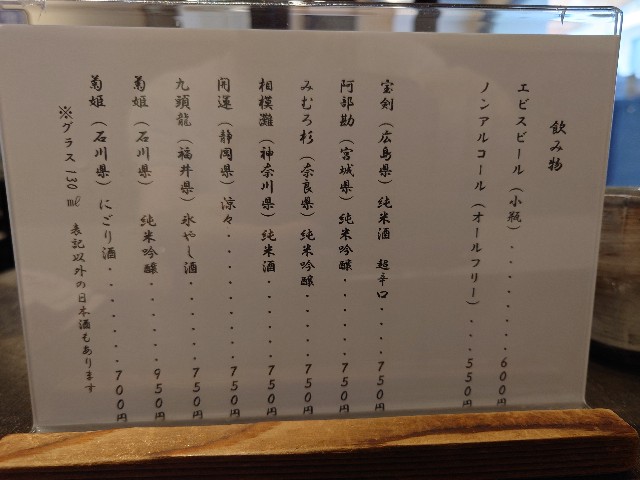 飲み物
エビスビール（小瓶）・・・・・・・・６００円
ノンアルコール（オールフリー）・・・５５０円
宝剣（広島県）純米酒　超辛口・・・・７５０円
阿部勘（宮城県）純米吟醸・・・・・・７５０円
みむろ杉（奈良県）純米吟醸・・・・・７５０円
相模灘（神奈川県）純米酒・・・・・・７５０円
開運（静岡県）涼々・・・・・・・・・７５０円
九頭龍（福井県）氷やし酒・・・・・・７５０円
菊姫（石川県）　純米吟醸・・・・・・９５０円
菊姫（石川県）にごり酒・・・・・・・７００円
※グラス130㎖　表記以外の日本酒もあります